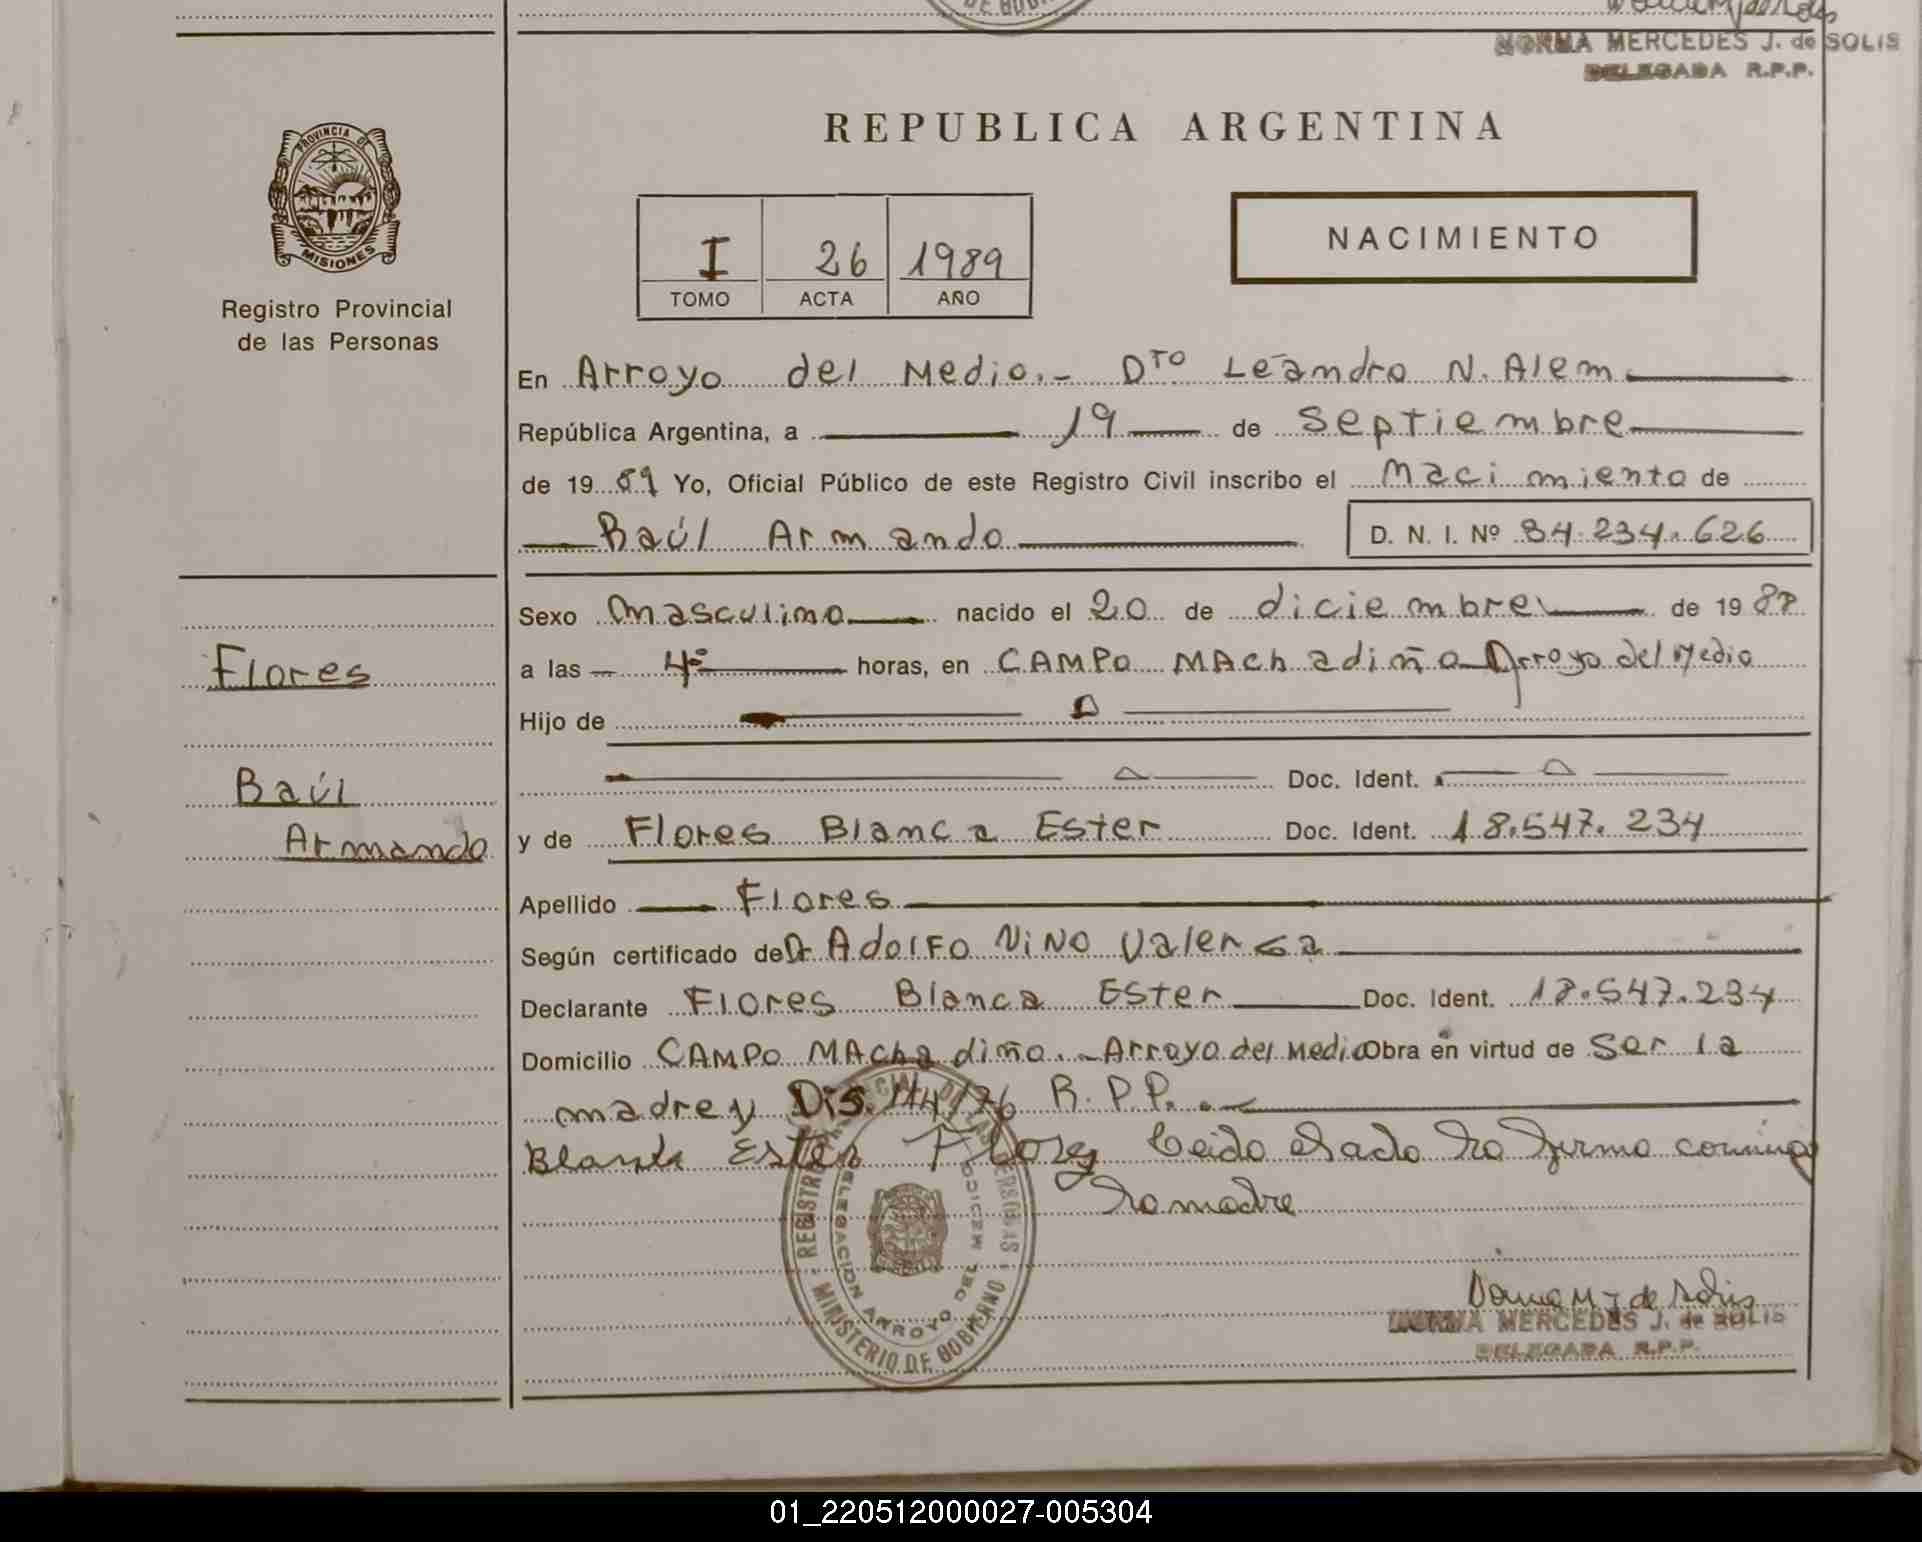 DE GOBI
NORMA MERCEDES J. de SOLIS
DELEGADA R.P.P.
PROVINCIA DE
MISIONES
Registro Provincial
de las Personas
REPUBLICA ARGENTINA
I 26 1989
TOMO ACTA AÑO
NACIMIENTO
En Arroyo del Medio.- Dto Leandro N. Alem
República Argentina, a 19 de Septiembre
de 19 89 Yo, Oficial Público de este Registro Civil inscribo el Nacimiento de
Raúl Armando D. N. I. Nº 34.234.626
Sexo Masculino nacido el 20 de diciembre de 19 88
a las 4º horas, en CAMPO MACHadiño Arroyo del Medio
Hijo de
Doc. Ident.
y de Flores Blanca Ester Doc. Ident. 18.547.234
Apellido Flores
Según certificado de Dr Adolfo NiNO Valersa
Declarante FLORES Blanca Ester Doc. Ident. 18.547.234
Domicilio CAMPO MACHadiño.- Arroyo del Medio Obra en virtud de Ser la
madre y Dis. 114/76 R.P.P.
Flores
Raúl
Armando
Blanca Ester Flores Leido el acto lo firma conmigo
la madre
REGISTRO PROVINCIAL DE LAS PERSONAS
DELEGACION ARROYO DEL MEDIO
MINISTERIO DE GOBIERNO
Norma M J de Solis
NORMA MERCEDES J. de SOLIS
DELEGADA R.P.P.
01_220512000027-005304